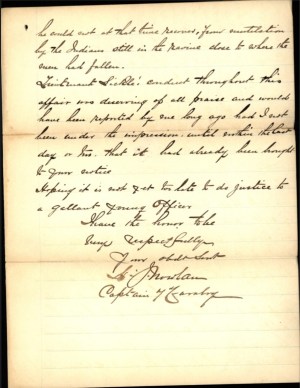 he could not at that time recover, from mutilation
by the Indians still in the ravine close to where the
men had fallen.
Lieutenant Sickle's conduct throughout this
affair was deserving of all praise and would
have been reported by me long ago had I not
been under the impression until within the last
day or two. that it had already been brought
to your notice
Hoping it is not yet too late to do justice to
a gallant young officer
I have the honor to be
very respectfully
Your obdt Servt
H. J. Nowlan
Captain 7 Cavalry